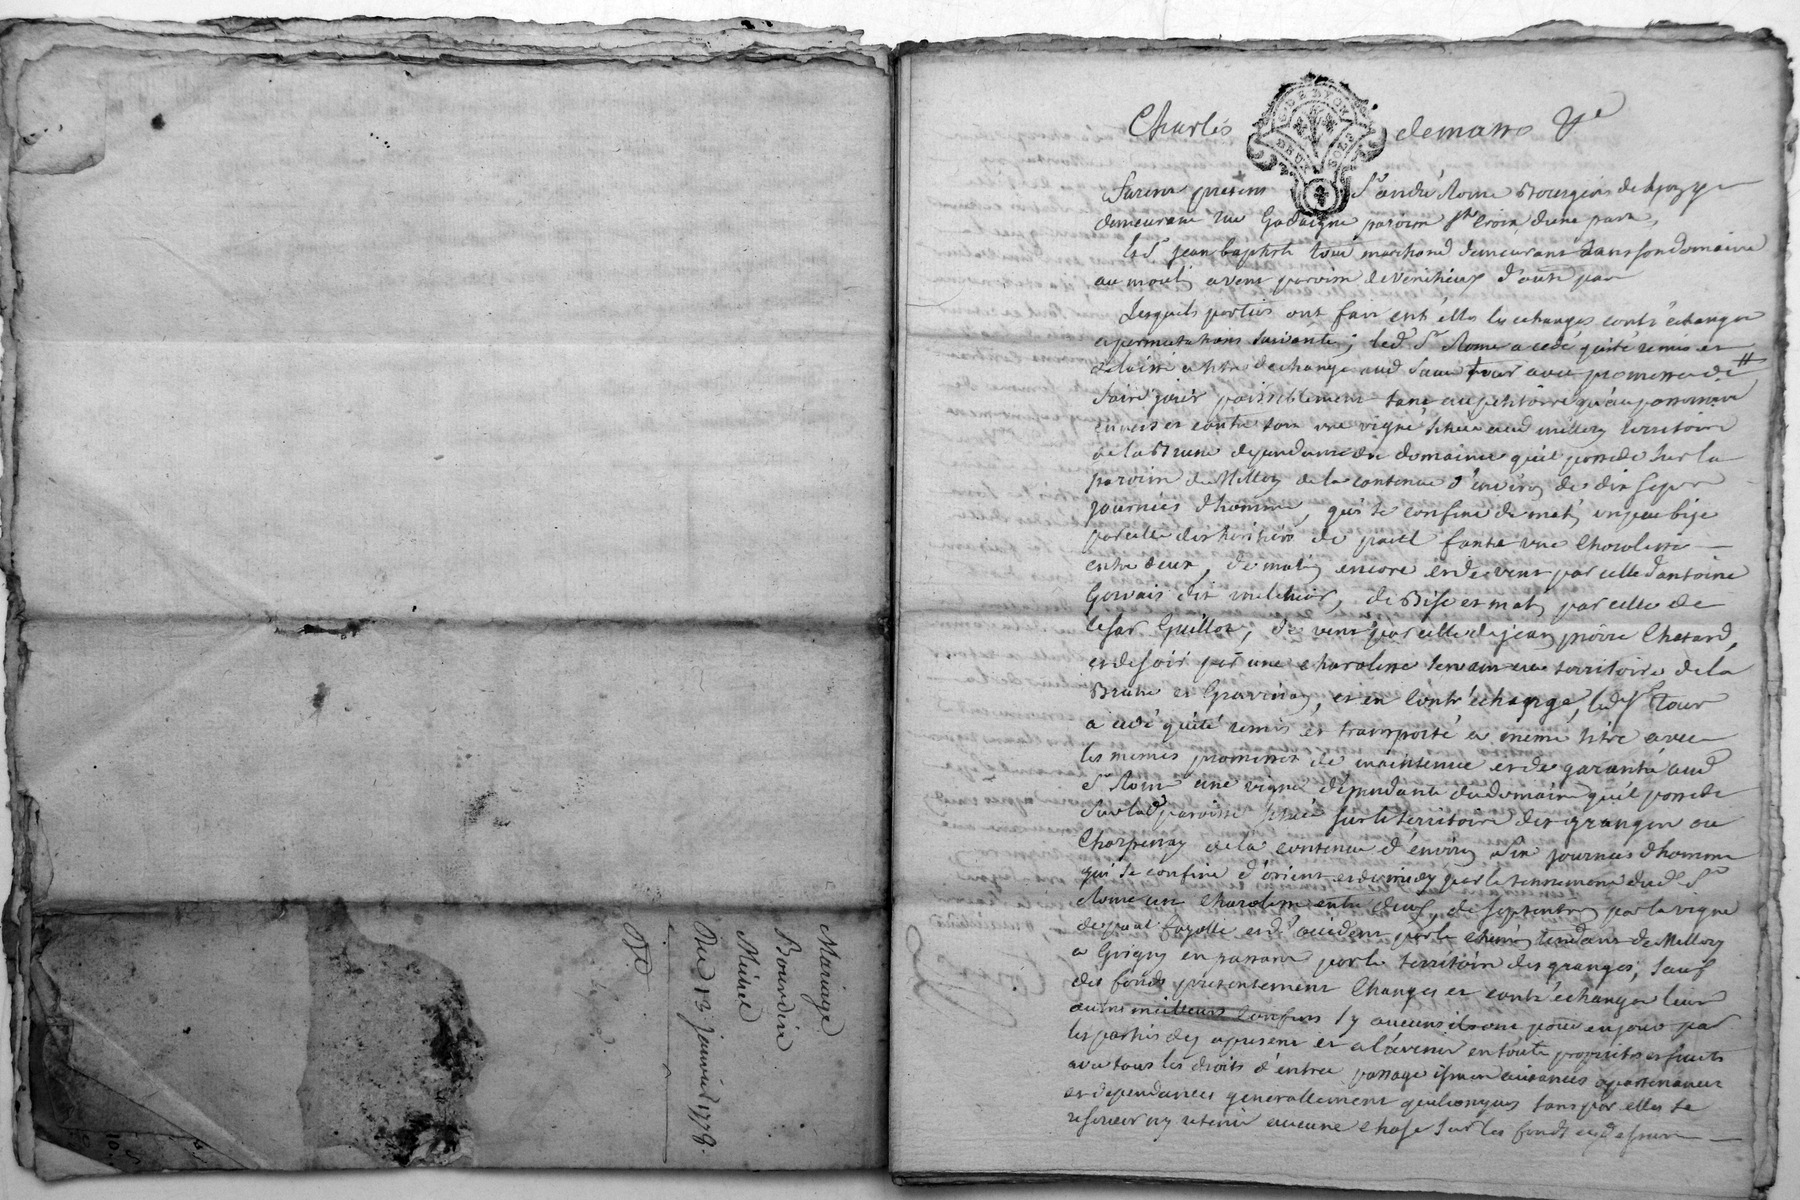 Mariage
Bourdin
Michel
Du 13 janvier 1778.
Charles demars
G. DE LYON
DEUX SOLS
furent presens Sr andré Rome Bourgeois de
demeurant rue Gadaigne paroisse Ste Croix d'une part,
Et Sr jean baptiste tour marchand demeurant dans son domaine
au moulin a vent paroisse de Venissieux d'autre part
Lesquels parties ont fait entr'elles les echanges contr'echanges
et permutations suivantes; led Sr Rome a cedé quité remis et
delaissé a titre dechange aud Sieur tour avec promesse de
faire jouir paisiblement tant au petitoire qu'au possessoire
envers et contre tous une vigne située aud millery territoire
de la Brune dependante du domaine qu'il possede sur la
paroisse de Millery de la contenue d'environ de dix sept
journées d'homme, qui se confine de matin un peu bise
par celle des heritiers de paul une charolesse
entre deux, de matin encore et de vent par celle d'antoine
Gervais dit melchior, de Bise et matin par celle de
Cesar Guillot, de vent par celle de jean pierre Chatard,
et de soir par une charolesse tendant au territoire de la
Brune et, et en contr'échange, led Sr Tour
a cedé quité remis et transporté a même titre avec
les memes promesses de maintenue et de garantie aud
Sr Rome une vigne dépendante du domaine qu'il possede
sur lad paroisse située sur le territoire des granges ou
Charpenay de la contenue d'environ six journées d'homme
qui se confine d'orient et de midy par le tennement dud Sr
Rome une charolesse entre deux, de septentrion par la vigne
de paul fayolle et d'occident par le chemin tendant de Millery
a Grigny en passant par le territoire des granges; sauf
des fonds présentement changés et contr'échangés leurs
autres meilleurs confins s'y aucuns ils ont pour en jouir par
les parties dez apresent et a l'avenir en toute proprieté et fruits
avec tous les droits d'entrée passage aisances apartenances
et dependances generallement quelconques sans par elles se
reserver ny retenir aucune chose sur les fonds